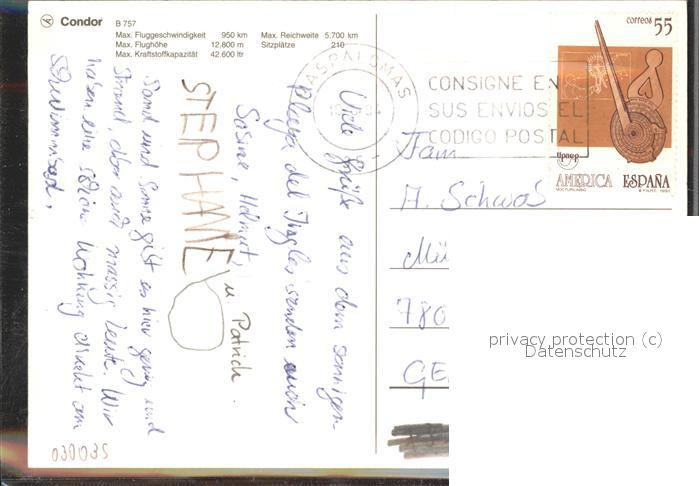 Condor B 757
Max. Fluggeschwindigkeit 950 km Max. Reichweite 5.700 km
Max. Flughöhe 12.800 m Sitzplätze 210
Max. Kraftstoffkapazität 42.600 ltr
MASPALOMAS
CONSIGNE EN
SUS ENVIOS EL
CODIGO POSTAL
correos 55
upaep
AMERICA ESPAÑA
Viele Grüße aus dem sonnigen
Playa del Ingles senden euch
Helmut,
STEPHANIE
u. Patrick.
Sand und Sonne gibt es hier genug und
Strand, aber auch massig Leute. Wir
haben eine schöne Wohnung direkt am
Schwimmbad,
030035
Fam
A. Schwab
Mü
780
GE
privacy protection (c)
Datenschutz